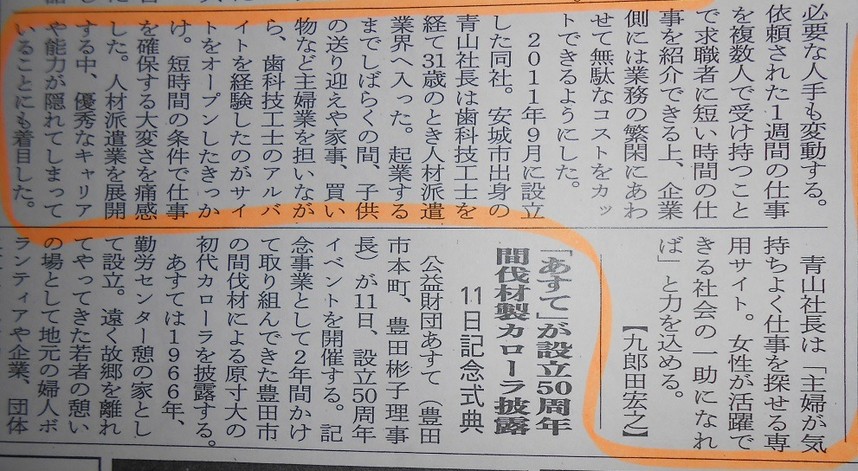 必要な人手も変動する。
依頼された1週間の仕事
を複数人で受け持つこと
で求職者に短い時間の仕
事を紹介できる上、企業
側には業務の繁閑にあわ
せて無駄なコストをカッ
トできるようにした。
2011年9月に設立
した同社。安城市出身の
青山社長は歯科技工士を
経て31歳のとき人材派遣
業界へ入った。起業する
までしばらくの間、子供
の送り迎えや家事、買い
物など主婦業を担いなが
ら、歯科技工士のアルバ
イトを経験したのがサイ
トをオープンしたきっか
け。短時間の条件で仕事
を確保する大変さを痛感
した。人材派遣業を展開
する中、優秀なキャリア
や能力が隠れてしまって
いることにも着目した。
青山社長は「主婦が気
持ちよく仕事を探せる専
用サイト。女性が活躍で
きる社会の一助になれ
ば」と力を込める。
【九郎田宏之】
「あすて」が設立50周年
間伐材製カローラ披露
11日記念式典
公益財団あすて(豊田
市本町、豊田彬子理事
長)が11日、設立50周年
イベントを開催する。記
念事業として2年間かけ
て取り組んできた豊田市
の間伐材による原寸大の
初代カローラを披露する。
あすては1966年、
勤労センター憩の家とし
て設立。遠く故郷を離れ
てやってきた若者の憩い
の場として地元の婦人ボ
ランティアや企業、団体